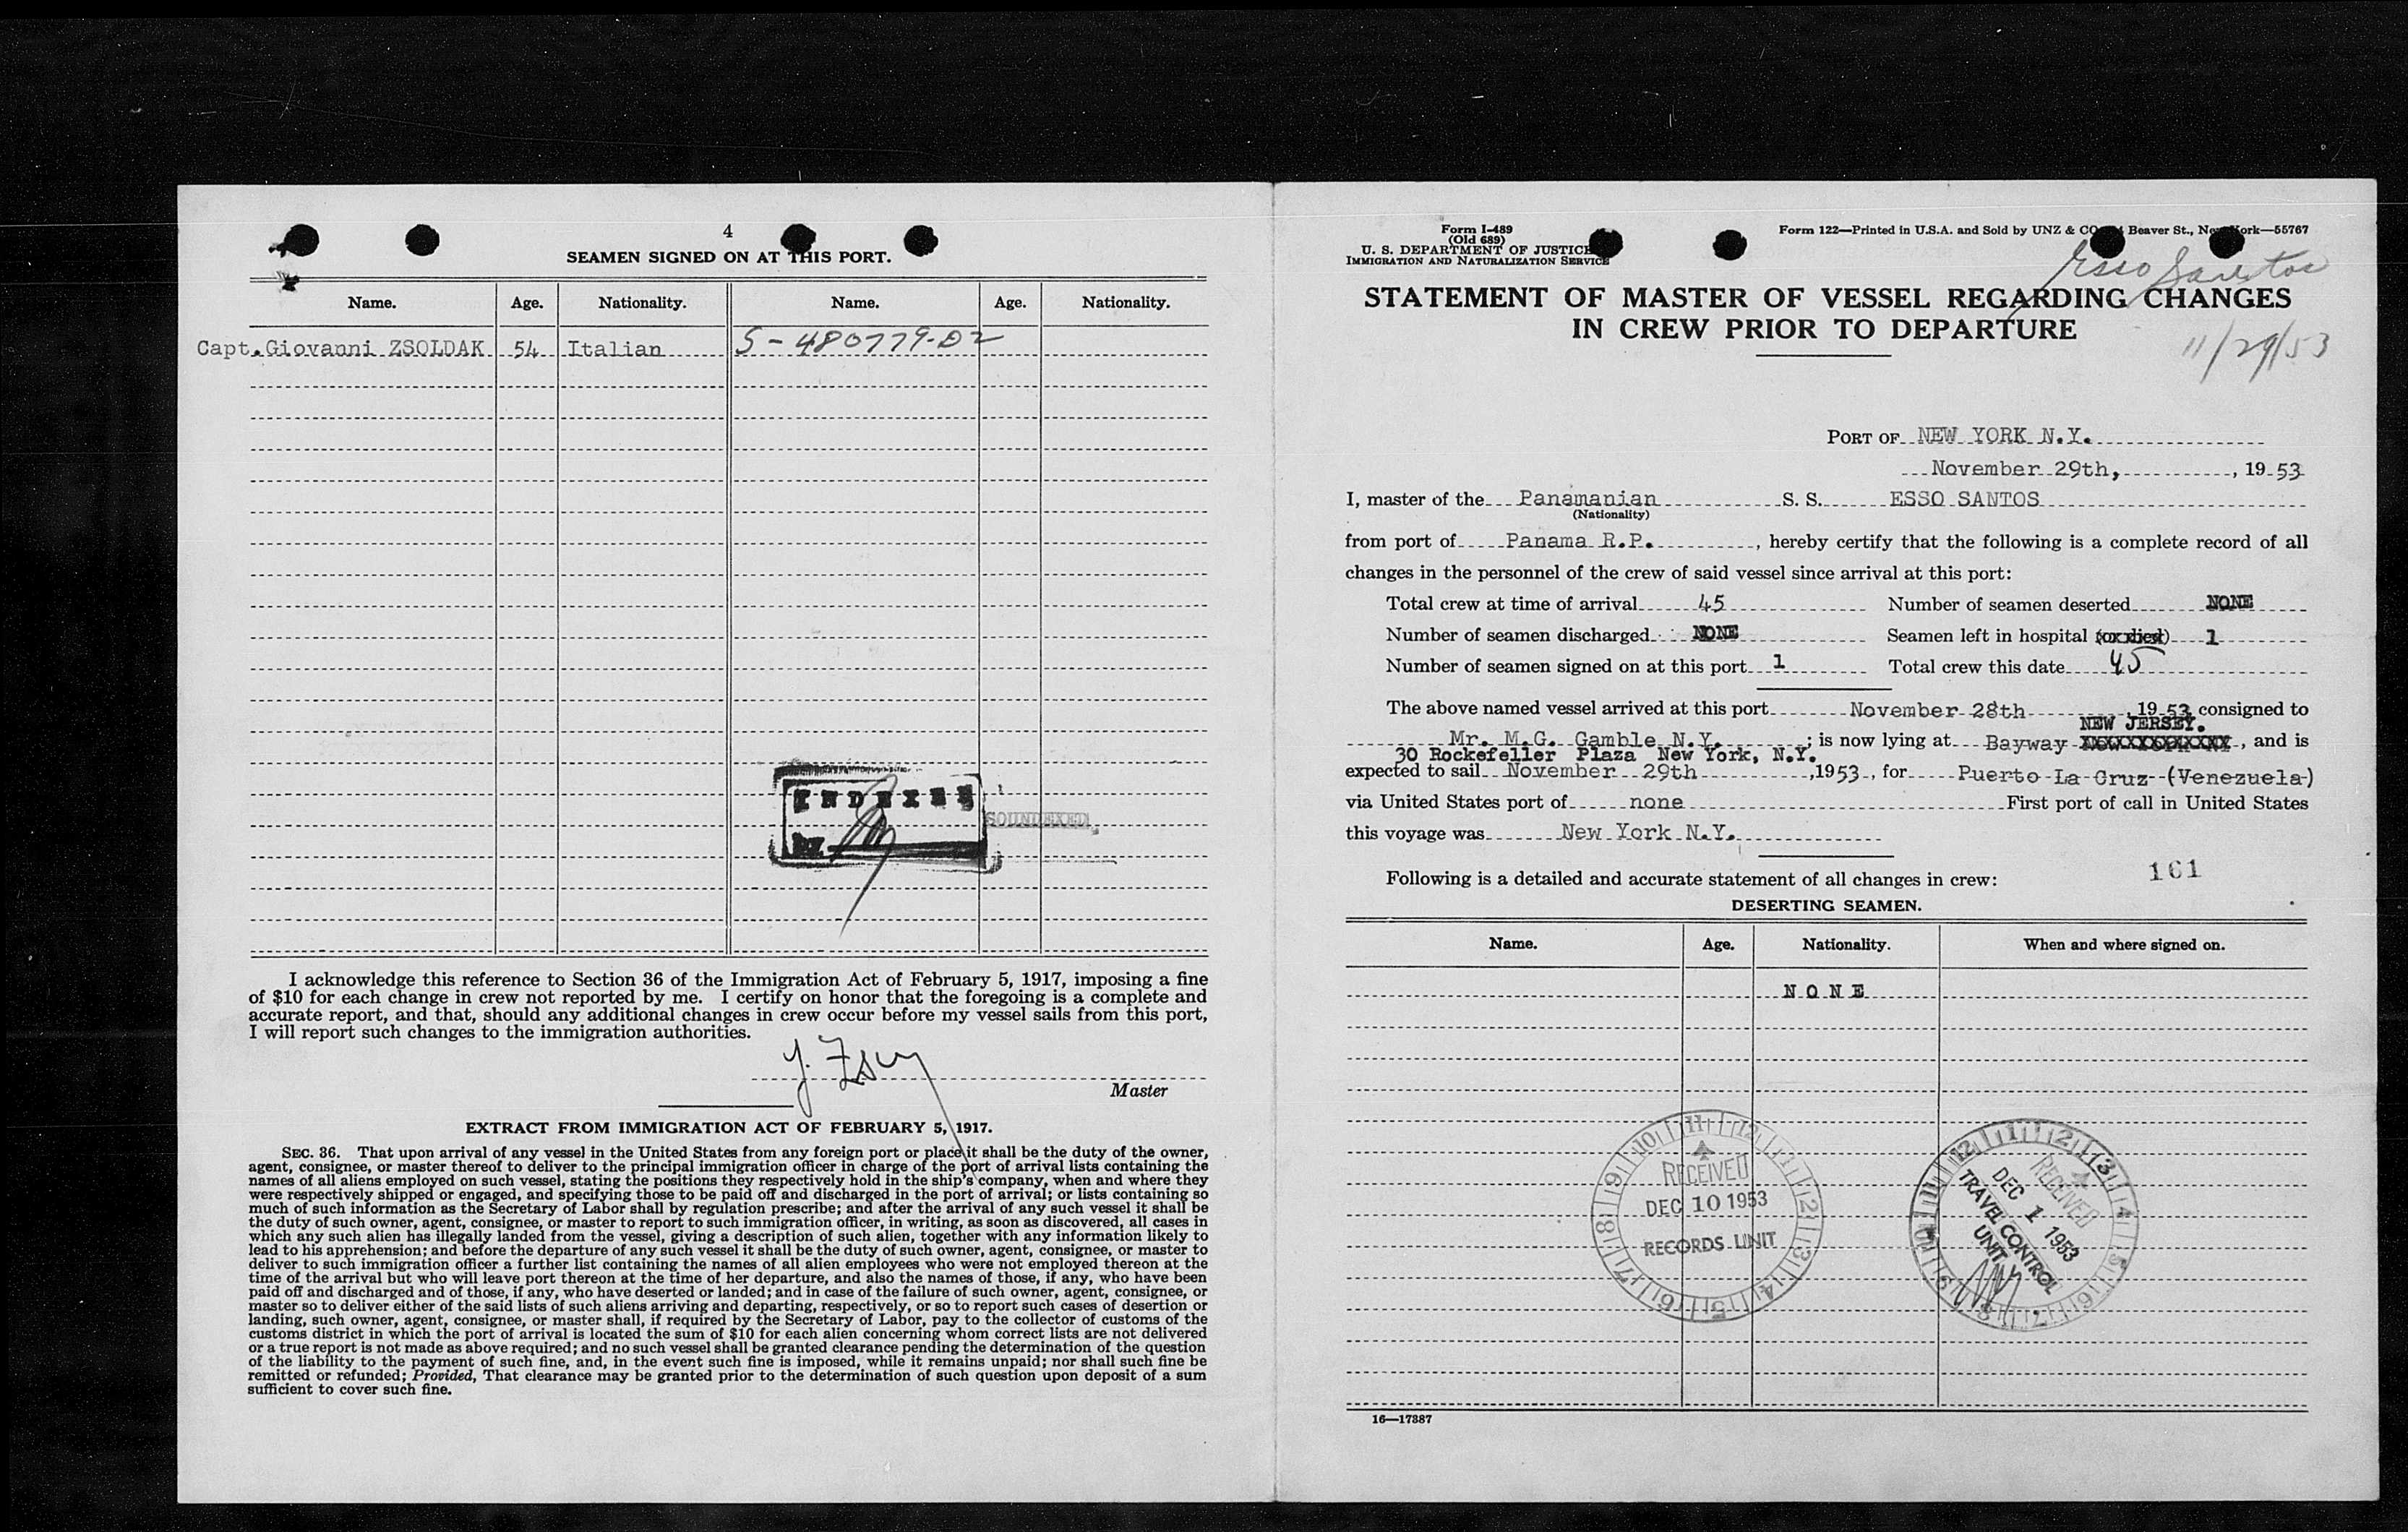 4
SEAMEN SIGNED ON AT THIS PORT.
Name. Age. Nationality. Name. Age. Nationality.
Capt. Giovanni ZSOLDAK 54 Italian S-480779-D2
INDEXED
BY
SOUNDEXED
I acknowledge this reference to Section 36 of the Immigration Act of February 5, 1917, imposing a fine
of $10 for each change in crew not reported by me. I certify on honor that the foregoing is a complete and
accurate report, and that, should any additional changes in crew occur before my vessel sails from this port,
I will report such changes to the immigration authorities.
Master
EXTRACT FROM IMMIGRATION ACT OF FEBRUARY 5, 1917.
SEC. 36. That upon arrival of any vessel in the United States from any foreign port or place it shall be the duty of the owner,
agent, consignee, or master thereof to deliver to the principal immigration officer in charge of the port of arrival lists containing the
names of all aliens employed on such vessel, stating the positions they respectively hold in the ship's company, when and where they
were respectively shipped or engaged, and specifying those to be paid off and discharged in the port of arrival; or lists containing so
much of such information as the Secretary of Labor shall by regulation prescribe; and after the arrival of any such vessel it shall be
the duty of such owner, agent, consignee, or master to report to such immigration officer, in writing, as soon as discovered, all cases in
which any such alien has illegally landed from the vessel, giving a description of such alien, together with any information likely to
lead to his apprehension; and before the departure of any such vessel it shall be the duty of such owner, agent, consignee, or master to
deliver to such immigration officer a further list containing the names of all alien employees who were not employed thereon at the
time of the arrival but who will leave port thereon at the time of her departure, and also the names of those, if any, who have been
paid off and discharged and of those, if any, who have deserted or landed; and in case of the failure of such owner, agent, consignee, or
master so to deliver either of the said lists of such aliens arriving and departing, respectively, or so to report such cases of desertion or
landing, such owner, agent, consignee, or master shall, if required by the Secretary of Labor, pay to the collector of customs of the
customs district in which the port of arrival is located the sum of $10 for each alien concerning whom correct lists are not delivered
or a true report is not made as above required; and no such vessel shall be granted clearance pending the determination of the question
of the liability to the payment of such fine, and, in the event such fine is imposed, while it remains unpaid; nor shall such fine be
remitted or refunded; Provided, That clearance may be granted prior to the determination of such question upon deposit of a sum
sufficient to cover such fine.
Form I-489
(Old 689)
U. S. DEPARTMENT OF JUSTICE
IMMIGRATION AND NATURALIZATION SERVICE
Form 122—Printed in U.S.A. and Sold by UNZ & CO. Beaver St., New York—55767
Esso Santos
STATEMENT OF MASTER OF VESSEL REGARDING CHANGES
IN CREW PRIOR TO DEPARTURE
11/29/53
PORT OF NEW YORK N.Y.
November 29th, , 19 53
I, master of the Panamanian S. S. ESSO SANTOS
(Nationality)
from port of Panama R.P. , hereby certify that the following is a complete record of all
changes in the personnel of the crew of said vessel since arrival at this port:
Total crew at time of arrival 45 Number of seamen deserted NONE
Number of seamen discharged NONE Seamen left in hospital (or died) 1
Number of seamen signed on at this port 1 Total crew this date 45
The above named vessel arrived at this port November 28th , 19 53 consigned to
NEW JERSEY.
Mr. M.G. Gamble N.Y. ; is now lying at Bayway , and is
30 Rockefeller Plaza New York, N.Y.
expected to sail November 29th , 1953 , for Puerto La Cruz (Venezuela)
via United States port of none First port of call in United States
this voyage was New York N.Y.
161
Following is a detailed and accurate statement of all changes in crew:
DESERTING SEAMEN.
Name. Age. Nationality. When and where signed on.
NONE
RECEIVED
DEC 10 1953
RECORDS UNIT
RECEIVED
DEC 1 1953
TRAVEL CONTROL
UNIT
16—17387